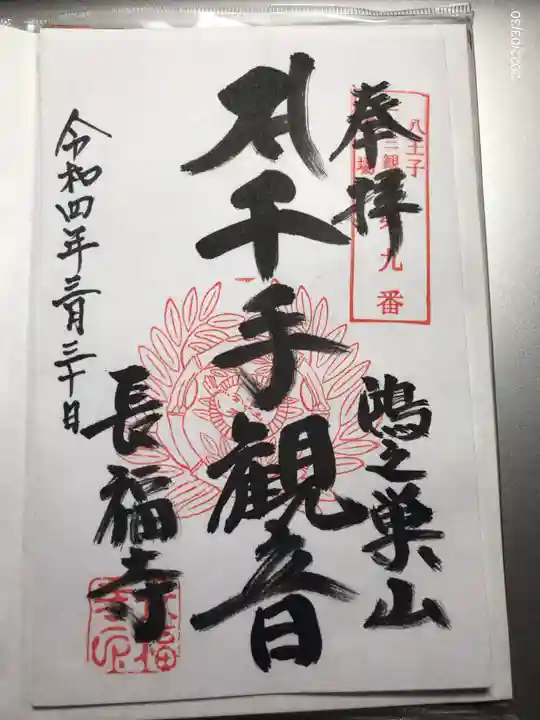 奉拝
八王子
三十三観音
霊場
第九番
鴻之巣山
千手観音
長福寺
令和四年三月三十日
2022/03/30